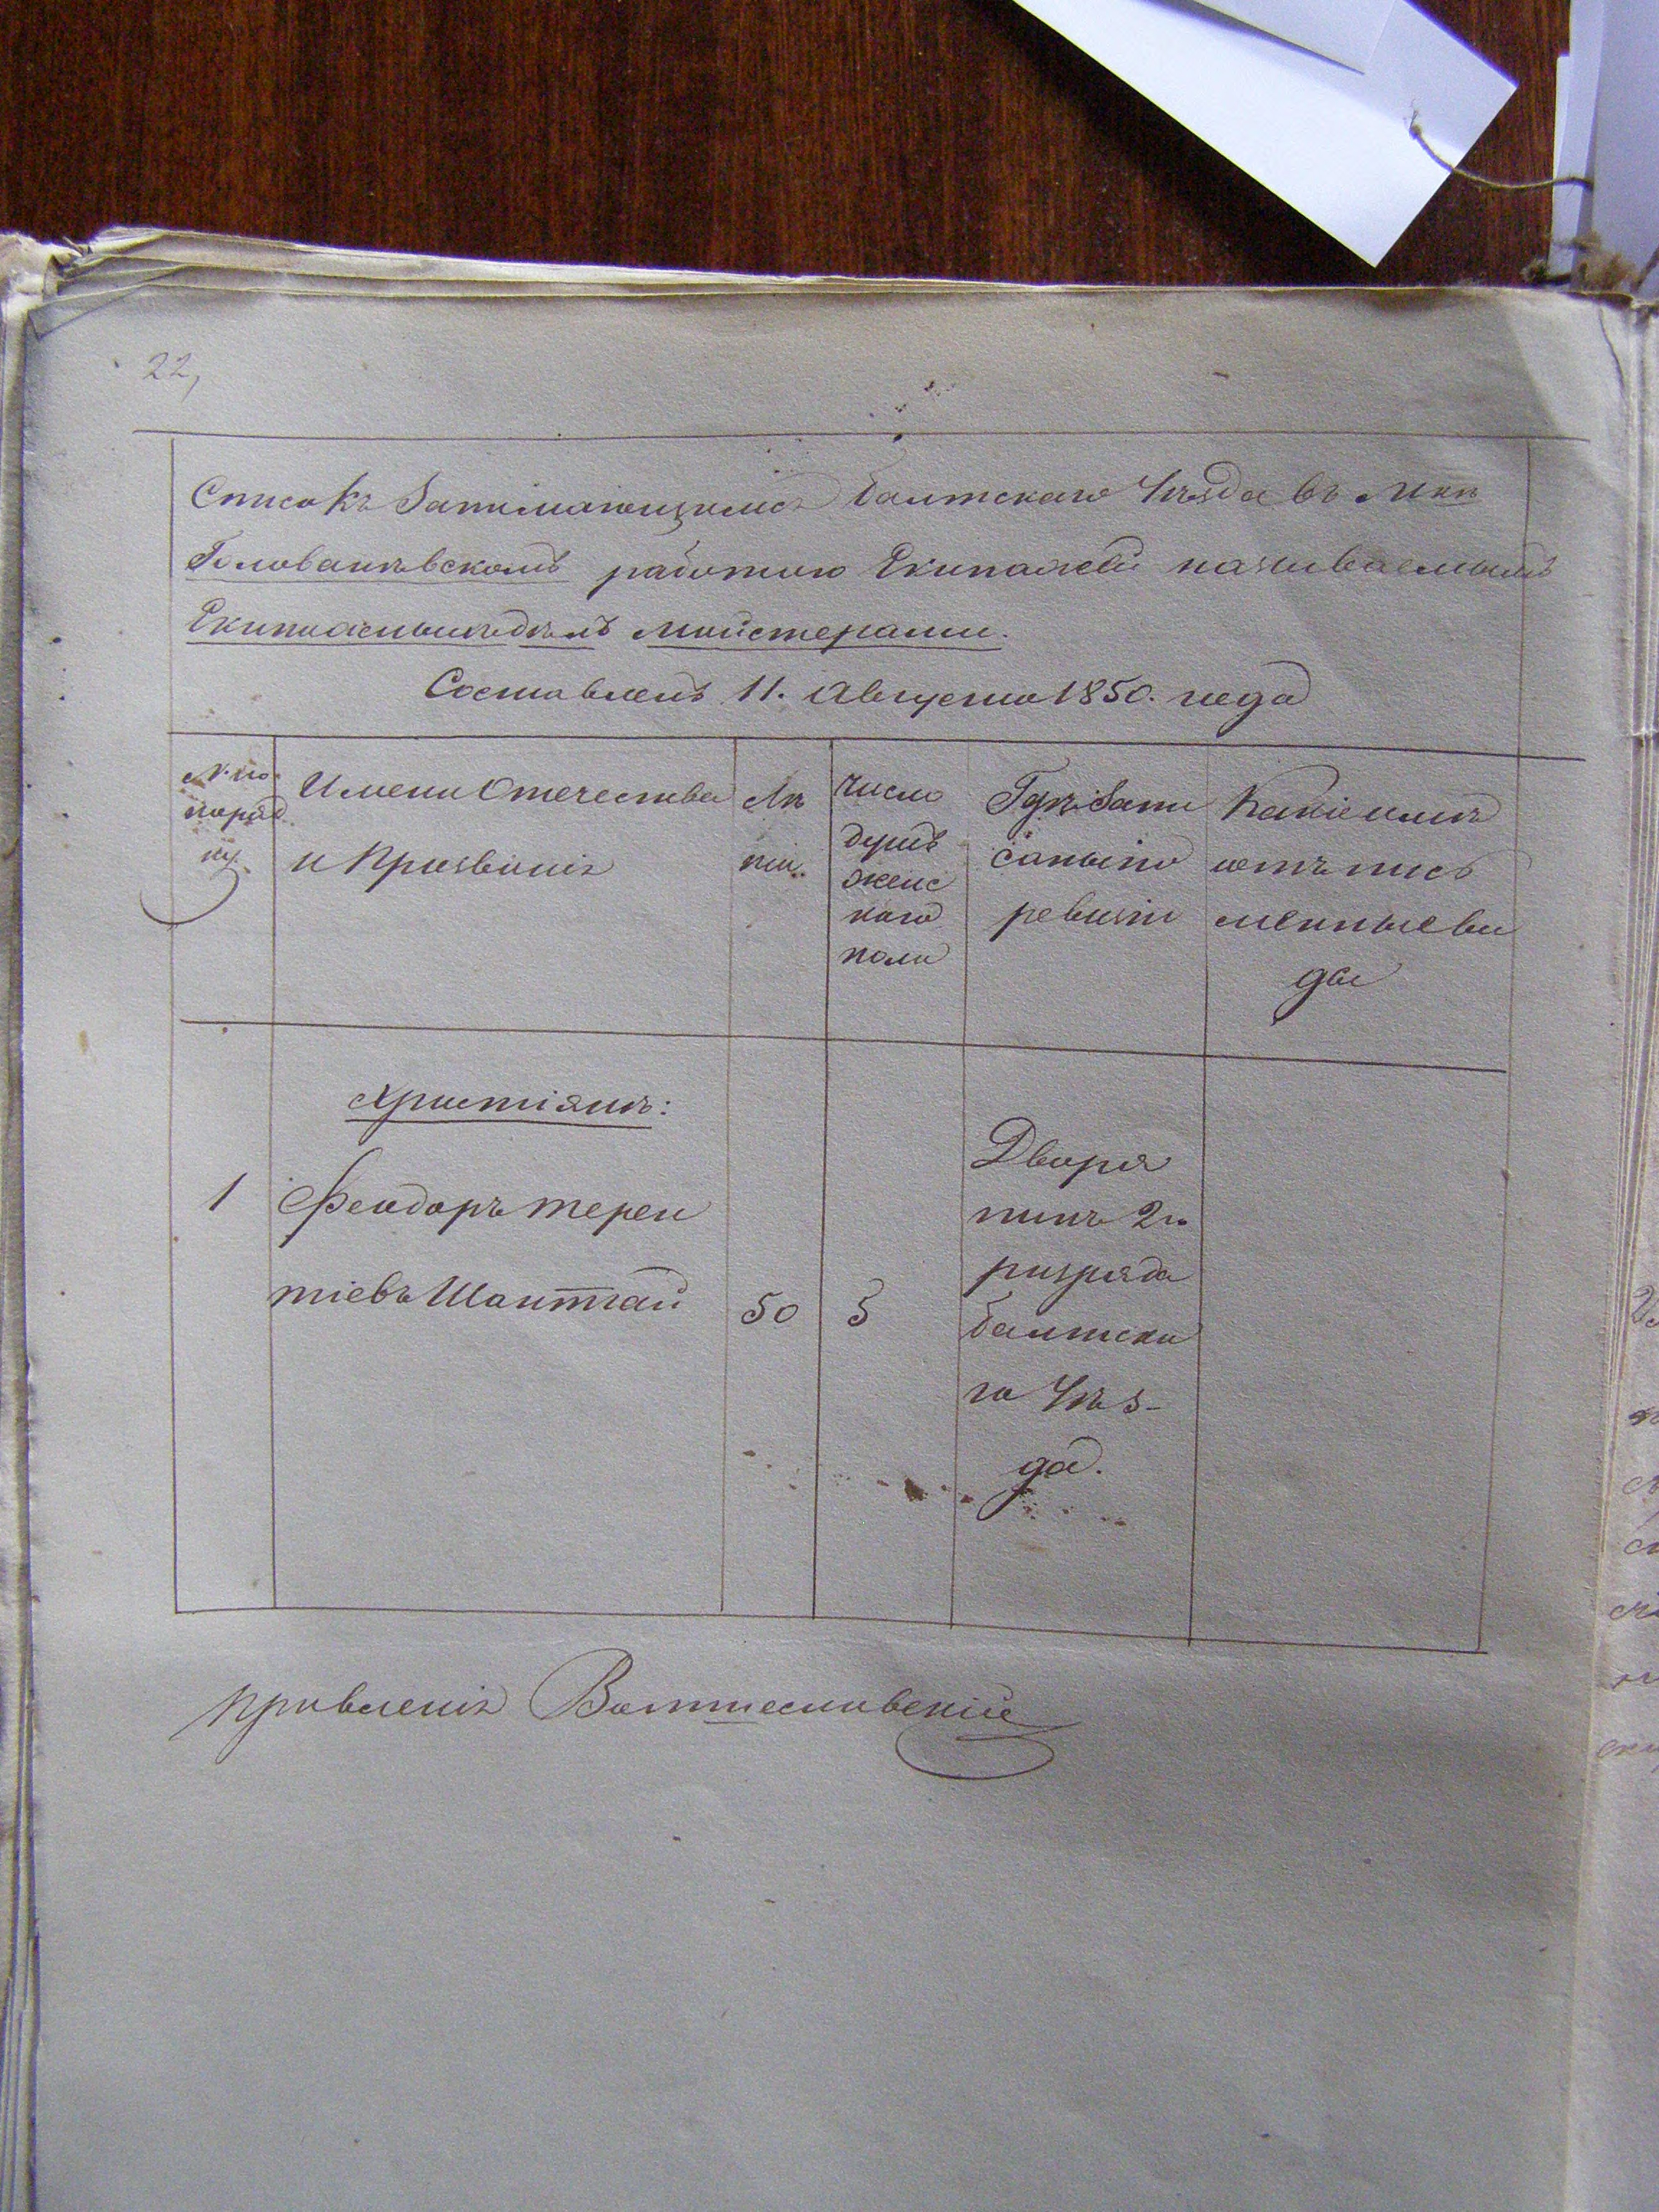 22,
Списокъ Занимающимся Балтскаго Уѣзда въ Мкѣ
Голованѣвскомъ работою Екипажей называемымъ
Екипажныхъ дѣлъ майстерами.
Составленъ 11. Августа 1850. года
№ по поряд ку.
Имена Отечества и Прозванія
Лѣ та.
Число душъ женс каго пола
Гдѣ запи саны по ревизіи
Какіе имѣ ютъ пись менные ви ды
Христіянъ:
1 Феодоръ Терен
тіевъ Шантгай 50 5
Дворя
нинъ 2го
розряда
Балтска
го Уѣз-
да.